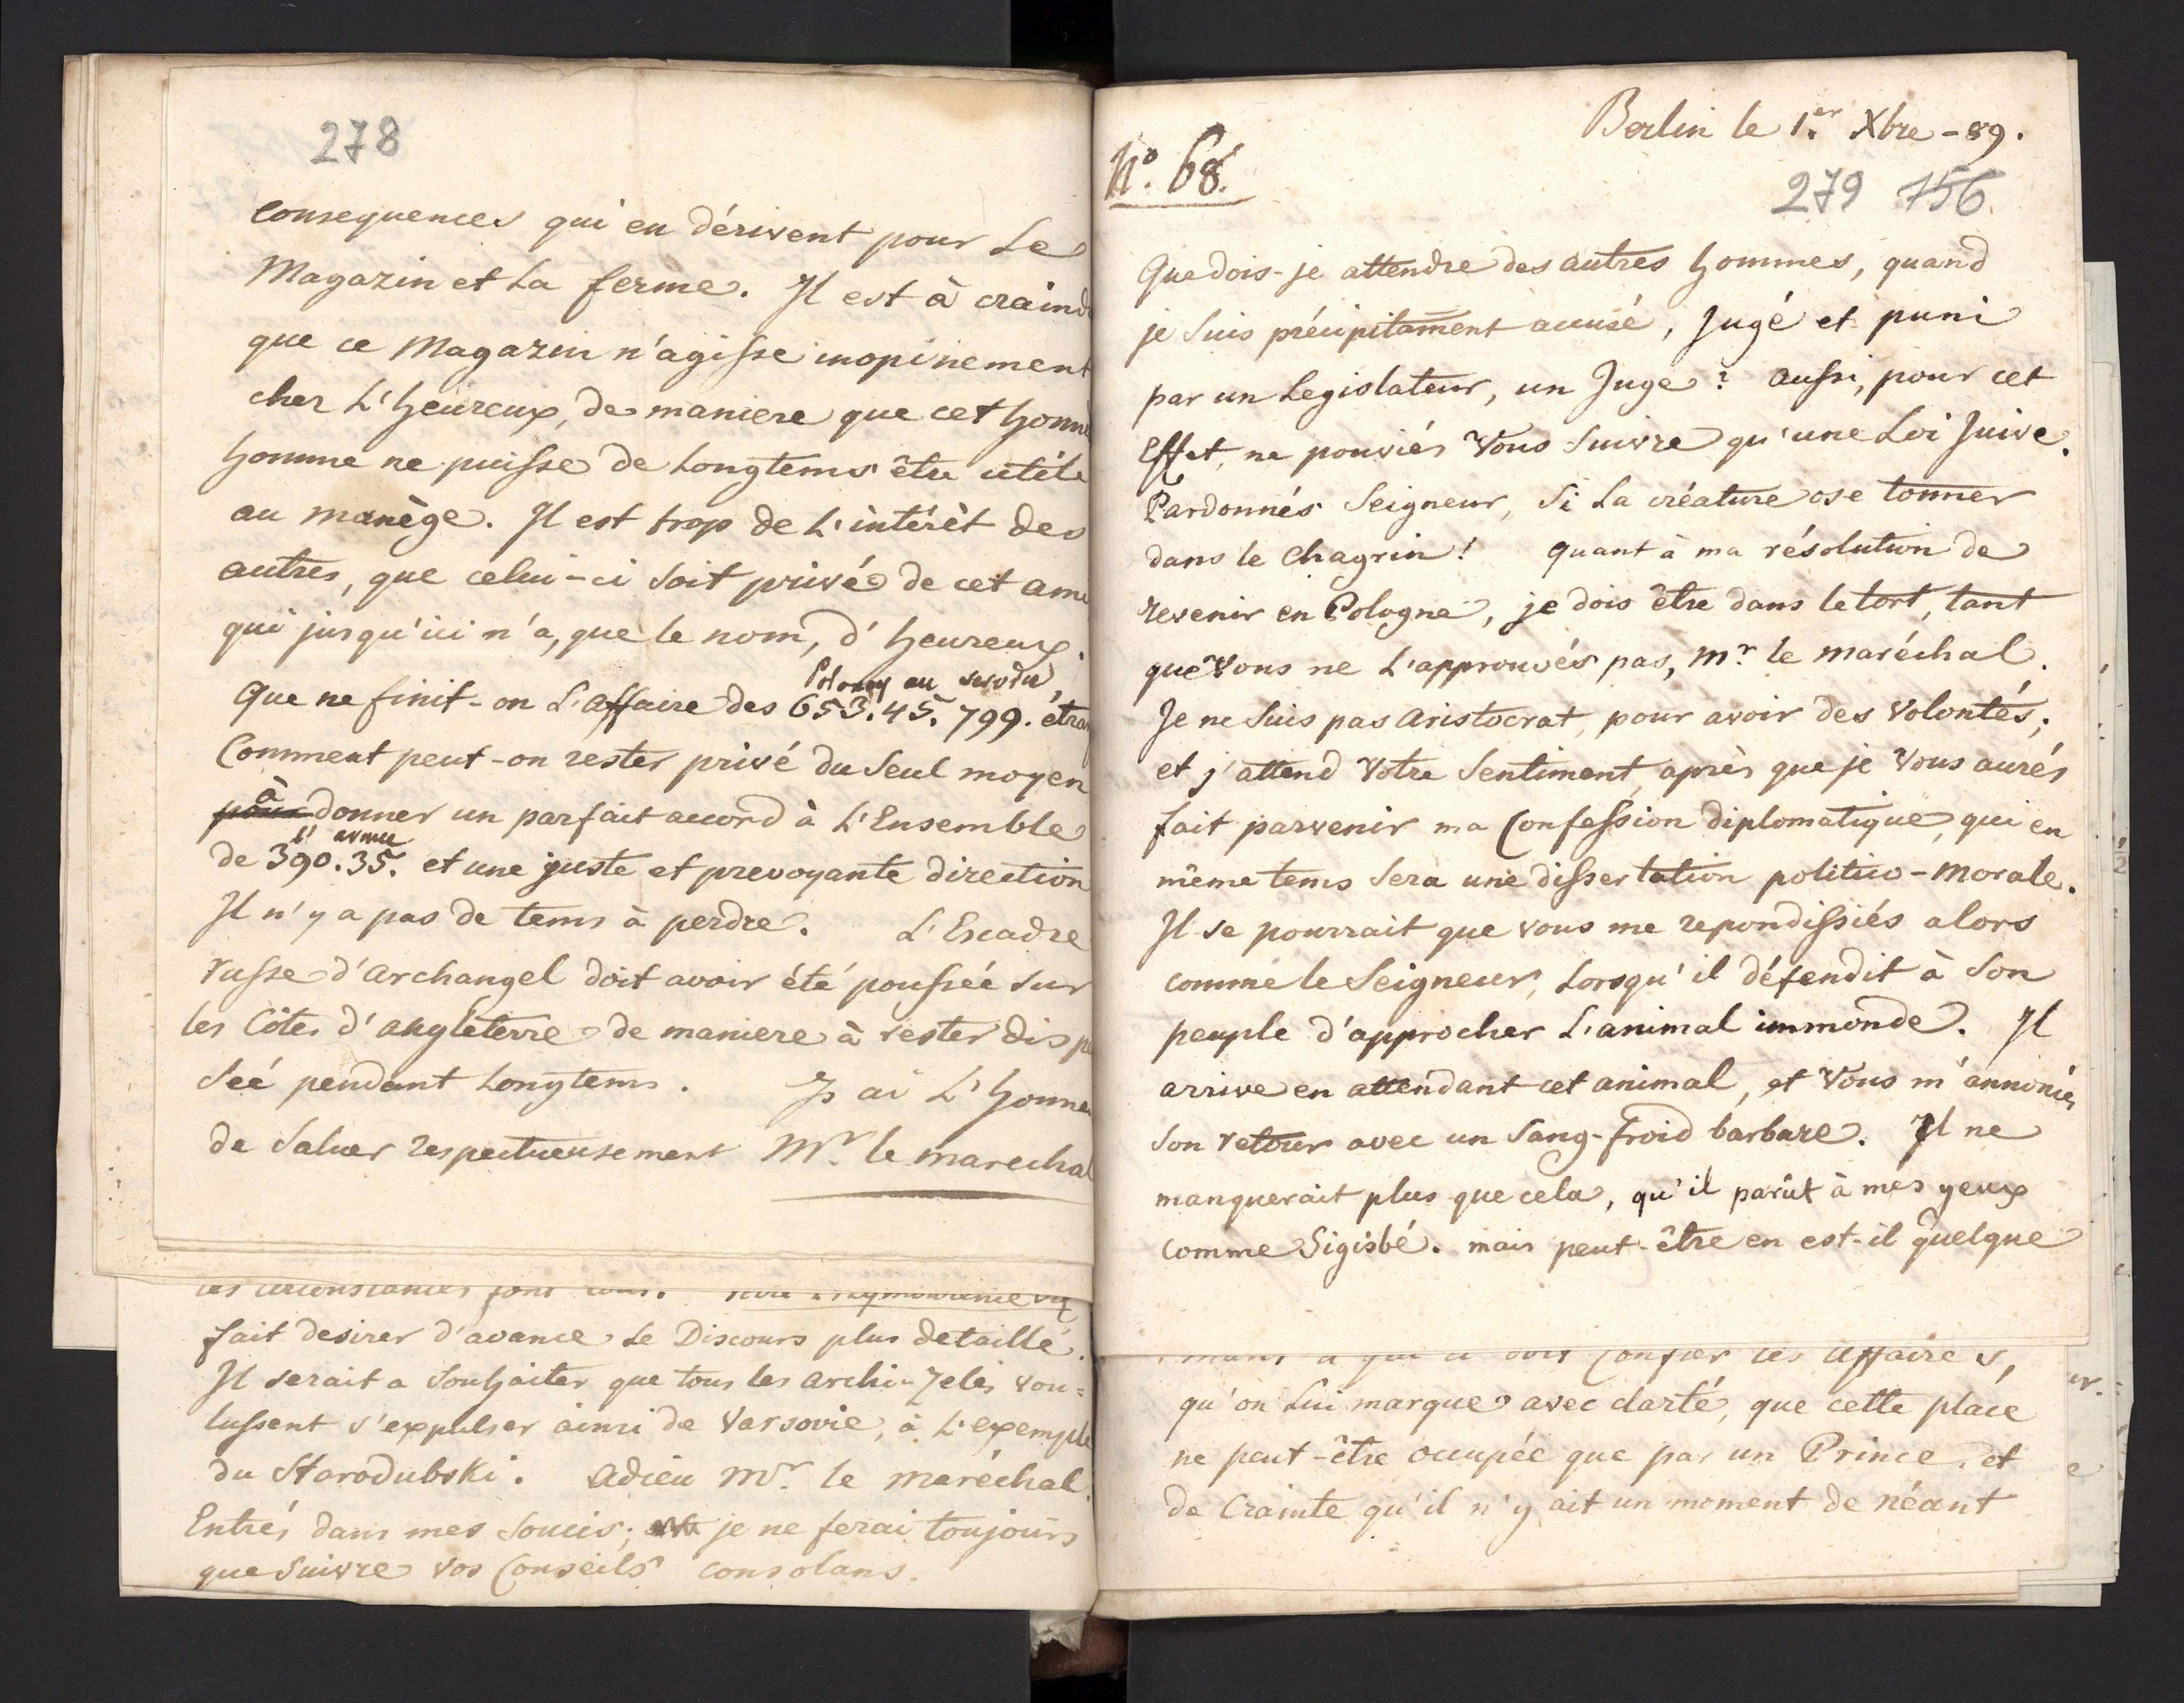 278
consequences qui en dérivent pour Le
Magazin et La ferme. Il est à craind
que ce Magazin n'agisse inopinement
cher L'heureux, de maniere que cet honne
homme ne puisse de Longtems être utile
au manège. Il est trop de L'intérêt des
autres, que celui-ci soit privé de cet ami
qui jusqu'ici n'a, que le nom, d'heureux.
au
Que ne finit-on L'affaire des 653. 45. 799. étran
Comment peut-on rester privé du seul moyen
à
pour donner un parfait accord à L'Ensemble
L' armée
de 390. 35. et une juste et prevoyante direction
Il n'y a pas de tems à perdre. L'Escadre
russe d'Archangel doit avoir été poussée sur
les Côtes d'angleterre de maniere à rester disp
seé pendant Longtems. J'ai L'honne
de saluer respectueusement Mr. le marechal
fait desirer d'avance Le Discours plus detaillé.
Il serait a souhaiter que tous les archi-Zelés vou=
lussent s'expulser ainsi de Varsovie, à L'exemple
du Starodubski. adieu Mr. le maréchal.
Entrés dans mes soucis; je ne ferai toujours
que suivre vos Conseils consolans.
Berlin le 1.er Xbre - 89.
No. 68.
279 156
Que dois-je attendre des autres hommes, quand
je suis précipitament accusé, Jugé et puni
par un Legislateur, un Juge? aussi, pour cet
Effet, ne pouviés Vous suivre qu'une Loi Juive.
Pardonnés Seigneur, si La créature ose tonner
dans le chagrin! quant à ma résolution de
revenir en Pologne, je dois être dans le tort, tant
que Vous ne L'approuvés pas, Mr. le maréchal.
Je ne suis pas aristocrat, pour avoir des volontés;
et j'attend Votre sentiment, après que je Vous aurés
fait parvenir ma Confession diplomatique, qui en
même tems sera une dissertation politico-morale.
Il se pourrait que vous me repondissiés alors
comme le Seigneur, Lorsqu'il défendit à son
peuple d'approcher L'animal immonde. Il
arrive en attendant cet animal, et Vous m'annoncés
son retour avec un sang-froid barbare. Il ne
manquerait plus que cela, qu'il parût à mes yeux
comme Sigisbé. mais peut-être en est-il quelque
confier ces affaires,
qu'on Lui marque avec clarté, que cette place
ne peut-être occupée que par un Prince, et
de Crainte qu'il n'y ait un moment de néant